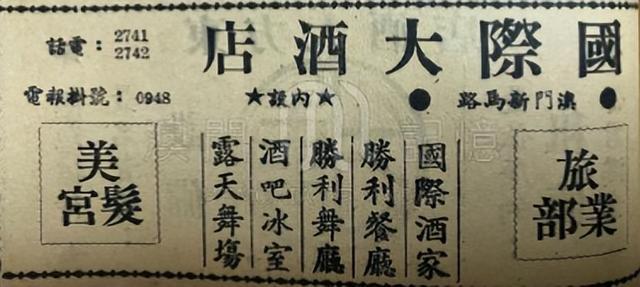 國際大酒店
●澳門新馬路●
★內設★
電話：2741
2742
電報掛號：0948
旅業部
國際酒家
勝利餐廳
勝利舞廳
酒吧冰室
露天舞塲
美髮宮
澳門記憶